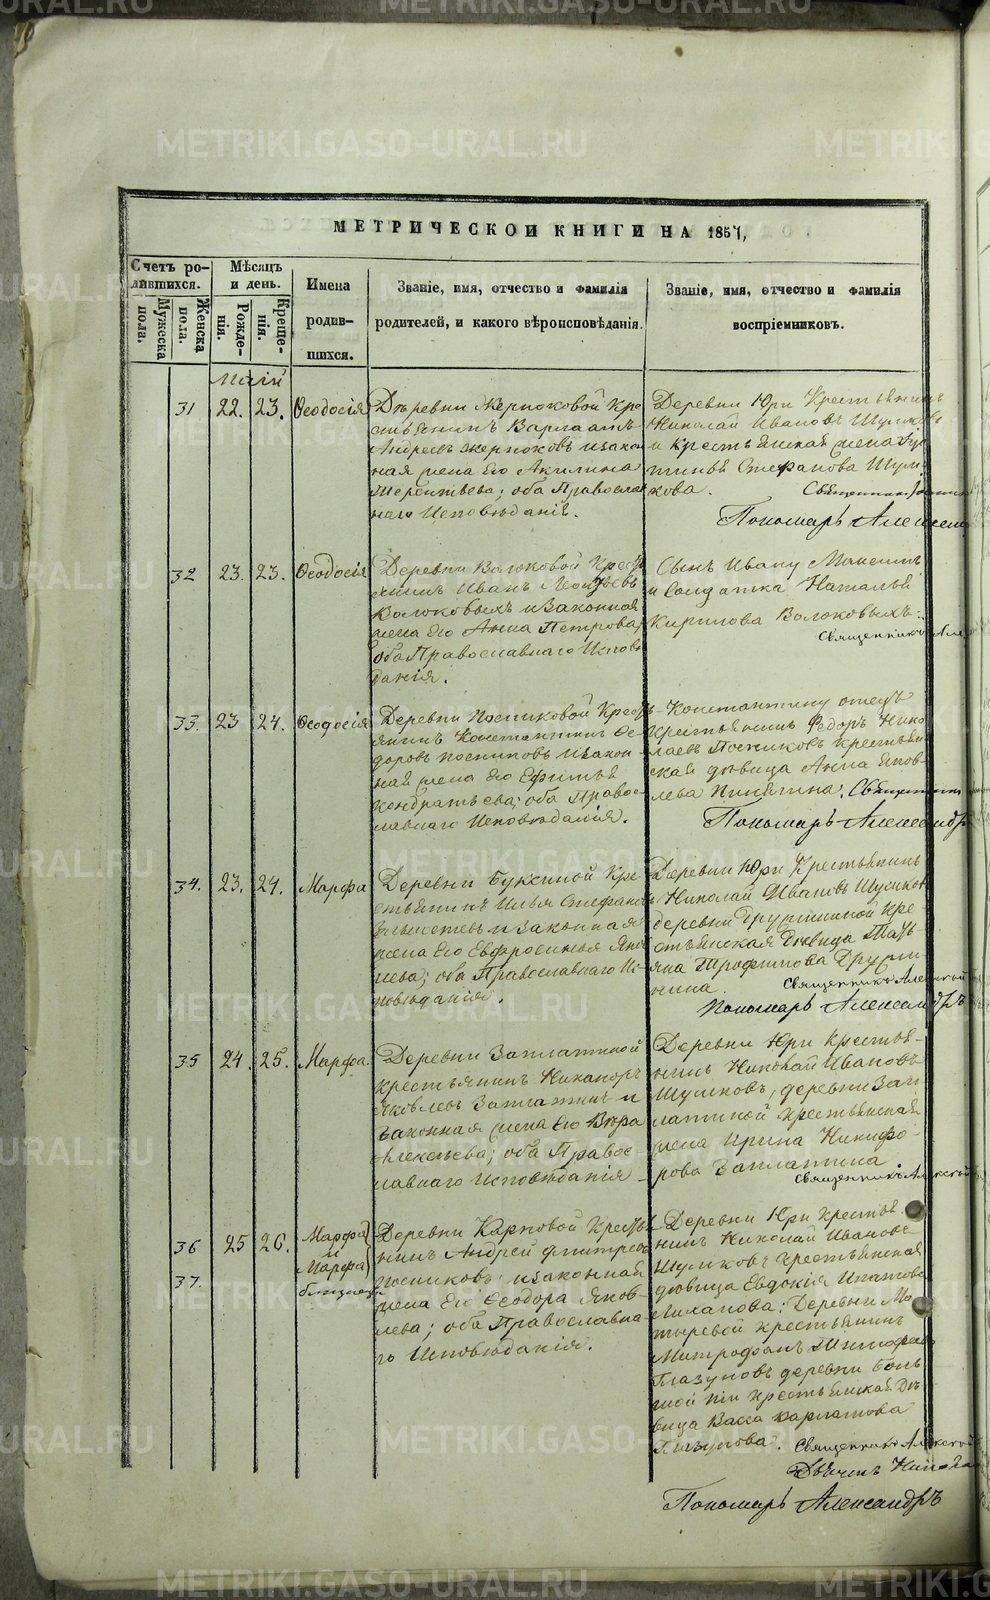 METRIKI.GASO-URAL.RU
МЕТРИЧЕСКОЙ КНИГИ НА 1857,
Счетъ ро-
дившихся.
Мужеска
пола.
Женска
пола.
Мѣсяцъ
и день.
Рожде-
нія.
Креще-
нія.
Имена
родив-
шихся.
Званіе, имя, отчество и фамилія
родителей, и какого вѣроисповѣданія.
Званіе, имя, отчество и фамилія
воспріемниковъ.
Маій
31
22.
23.
Ѳеодосія
Деревни Жерноковой Кре
стьянинъ Варлаамъ
Андреевъ Жерноковъ и закон
ная жена его Акилина
Терентьева; оба Православ
наго Исповѣданія.
Деревни Юри Крестьянинъ
Николай Ивановъ Шулиховъ
и Крестьянская жена
Стефанова
кова. Священникъ
Пономарь
32
23.
23.
Ѳеодосія
Деревни Волоковой Кресть
янинъ Иванъ Леонтьевъ
Волоковыхъ и Законная
жена его Анна Петрова,
оба Православнаго Исповѣ
данія.
Сынъ Ивану
и Солдатка Наталья
Кирилова Волоковыхъ.
Священникъ
33.
23
24.
Ѳеодосія
Деревни Посниковой Кресть
янинъ Константинъ Ѳе
доровъ Посниковъ и закон
ная жена его Ефимья
Кондратьева; оба Право
славнаго Исповѣданія.
Константину отецъ
крестьянинъ Федоръ Нико
лаевъ Посниковъ крестьян
ская дѣвица Анна Яков
лева Никитина. Священник
Пономарь Александръ
34.
23.
24.
Марфа
Деревни Буксиной Кре
стьянинъ Илья Стефанов
и законная
жена его Евфросинья Яко
лева; оба Православнаго Ис
повѣданія.
Деревни Юри Крестьянинъ
Николай Ивановъ Шулихов
деревни Дружининой Кре
стьянская Дѣвица Тать
яна Трофимова Дружи
нина. Священникъ
Пономарь Александръ
35
24.
25.
Марфа.
Деревни Заплатиной
крестьянинъ Никаноръ
Яковлевъ Заплатинъ и
законная жена его Вѣра
Алексѣева; оба Правос-
лавнаго Исповѣданія
Деревни Юри Крестья-
нинъ Николай Ивановъ
Шулиховъ, деревни Зап
латиной крестьянская
жена Ирина Никифо-
рова Заплатина
Священникъ
36
37.
25
26.
Марфа
и
Марфа
близнецы
Деревни Карповой Крестья
нинъ Андрей Дмитріев
Посниковъ и законная
жена его Ѳеодора Яков
лева; оба Православна
го Исповѣданія.
Деревни Юри крестья
нинъ Николай Ивановъ
Шулиховъ крестьянская
дѣвица Евдокія Ипатова
Лиханова; Деревни Мо
тыревой крестьянинъ
Митрофанъ Тимофеевъ
Глазуновъ деревни Боль
шой крестьянская Дѣ
вица Васса
Глазунова. Священникъ
Пономарь Александръ